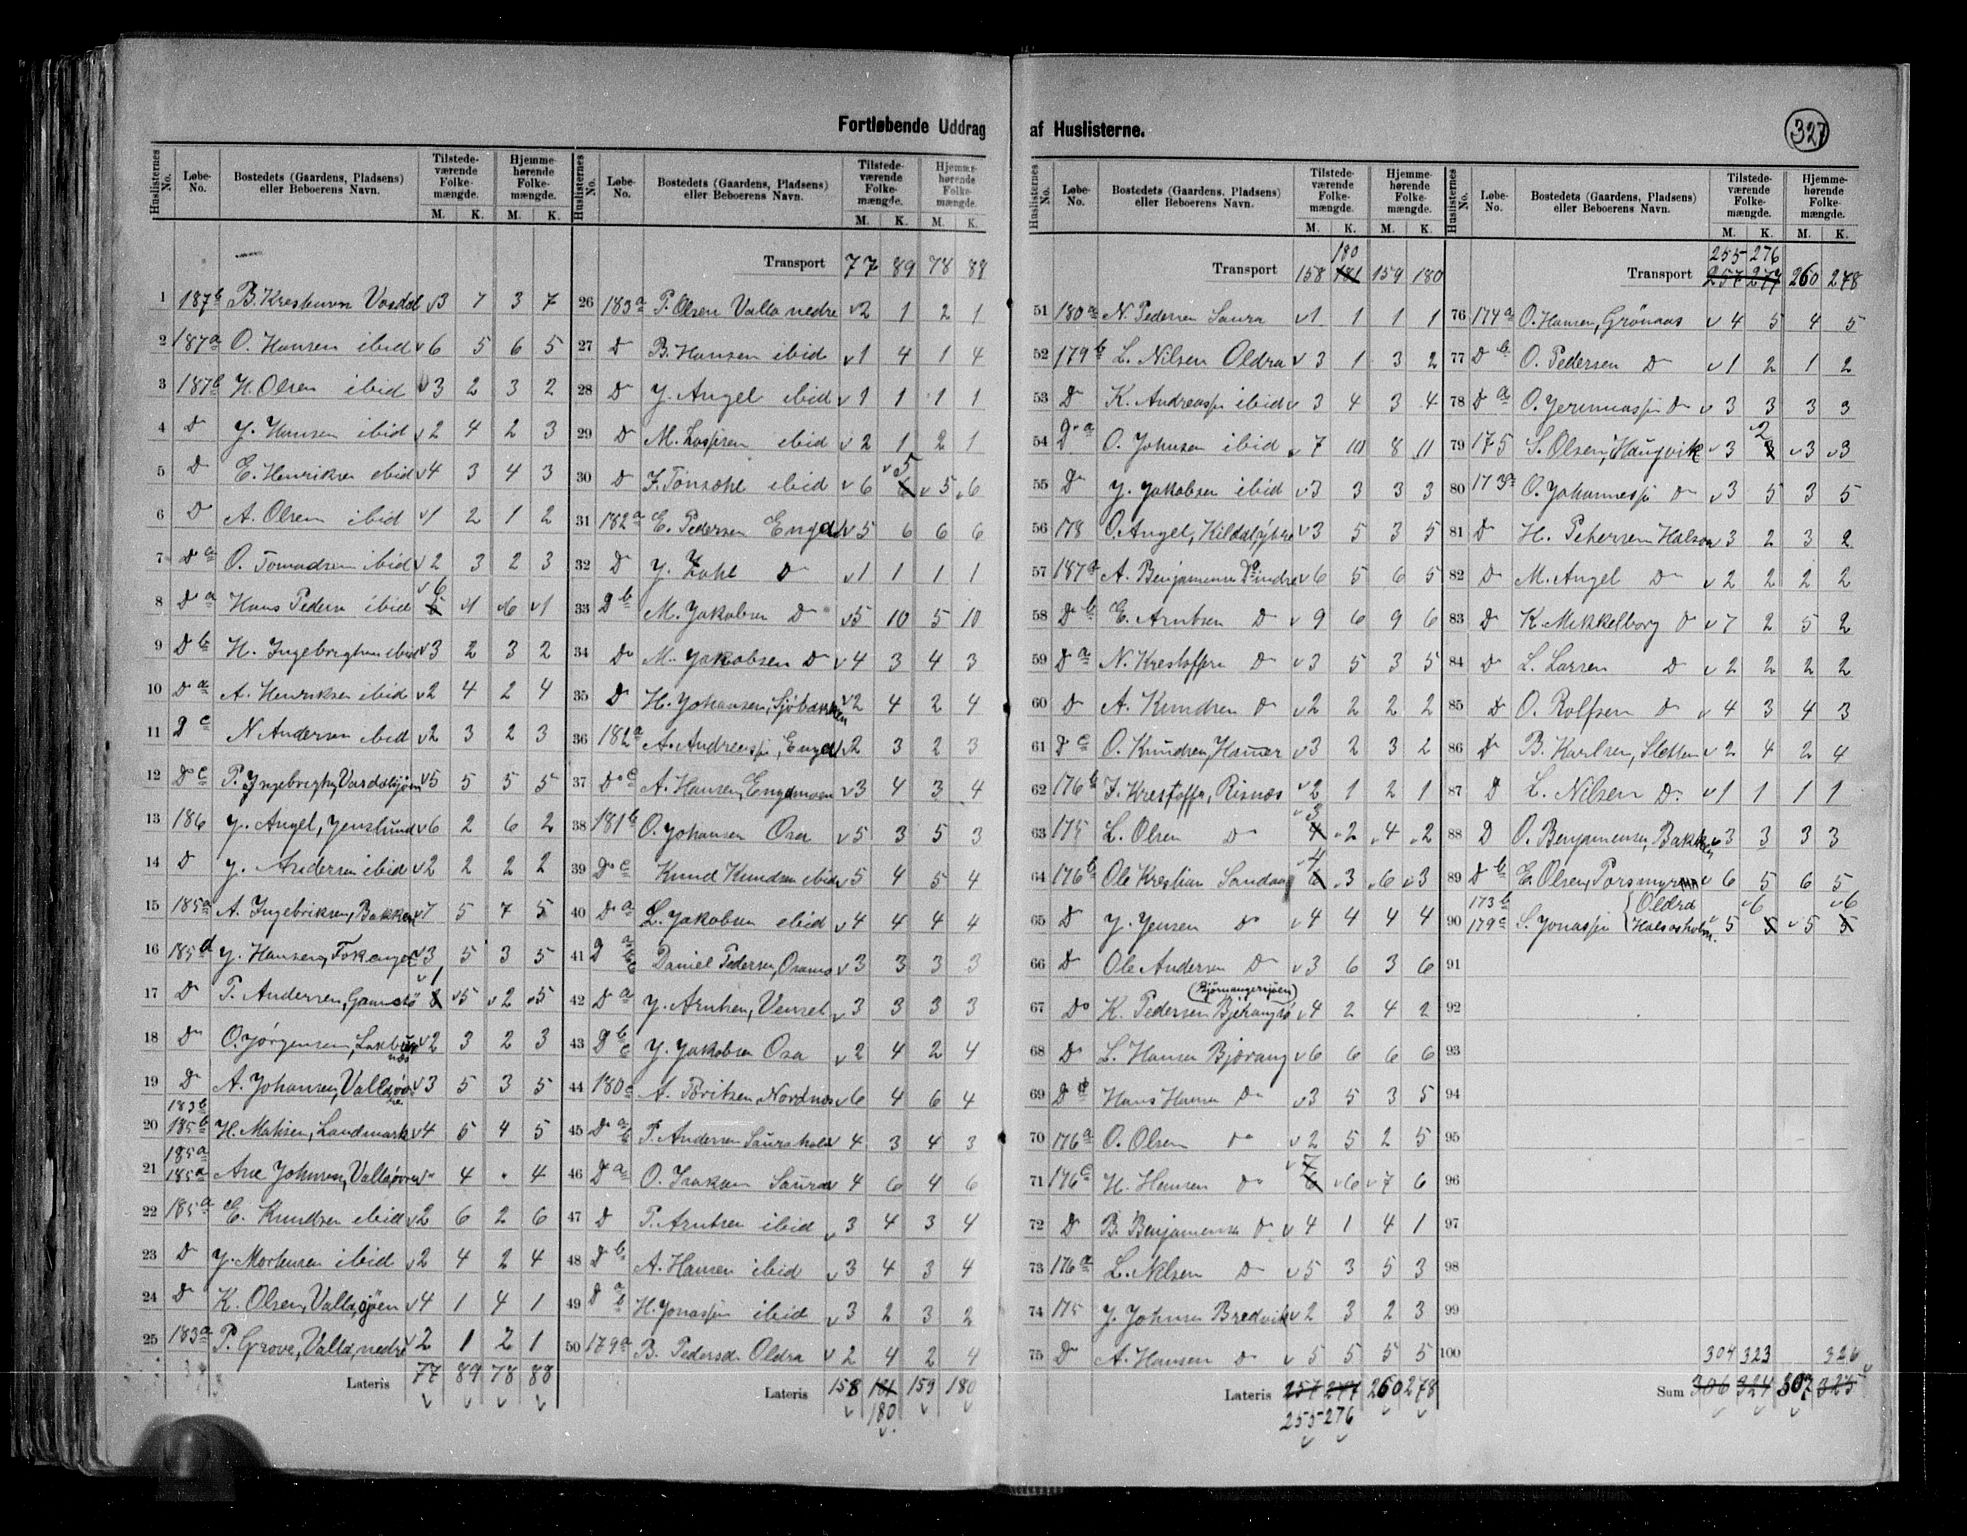 327
Fortløbende Uddrag af Huslisterne.
Huslisternes No. Løbe-No. Bostedets (Gaardens, Pladsens) eller Beboerens Navn. Tilstedeværende Folkemængde. M. K. Hjemmehørende Folkemængde. M. K.
1 187b B. Vasdal 3 7 3 7
2 187a O. Hansen ibid 6 5 6 5
3 187b H. Olsen ibid 3 2 3 2
4 Do J. Hansen ibid 2 4 2 3
5 Do E. Henriksen ibid 4 3 4 3
6 Do A. Olsen ibid 1 2 1 2
7 Do a O. ibid 2 3 2 3
8 Do a Hans Peders ibid 6 1 6 1
9 Do b H. ibid 3 2 3 2
10 Do a A. Henriksen ibid 2 4 2 4
11 Do c N. Andersen ibid 2 3 2 3
12 Do c P. 5 5 5 5
13 186 J. Angel, Jenslund 6 2 6 2
14 Do J. Andersen ibid 2 2 2 2
15 185a A. Ingebriksen, Bakken 7 5 7 5
16 185d J. Hansen, 3 5 3 5
17 Do P. Andersen, 1 5 2 5
18 Do O. Jørgensen, 2 3 2 3
19 Do A. Johansen, 3 5 3 5
183b
20 185b H. Landmark 4 5 4 5
185a
21 185a Johnsen, " 4 " 4
22 185a E. Knudsen ibid 2 6 2 6
23 Do J. Mortensen ibid 2 4 2 4
24 Do K. Olsen, 4 1 4 1
25 183a P. Grove, Valla, nedre 2 1 2 1
Lateris 77 89 78 88
Huslisternes No. Løbe-No. Bostedets (Gaardens, Pladsens) eller Beboerens Navn. Tilstedeværende Folkemængde. M. K. Hjemmehørende Folkemængde. M. K.
Transport 77 89 78 88
26 183a P. Olsen Valla nedre 2 1 2 1
27 Do B. Hansen ibid 1 4 1 4
28 Do J. Angel ibid 1 1 1 1
29 Do M. ibid 2 1 2 1
30 Do ibid 6 5 5 6
31 182a E. Pedersen 5 6 6 6
32 Do J. Zahl Do 1 1 1 1
33 Do b M. Jakobsen Do 5 10 5 10
34 Do M. Jakobsen Do 4 3 4 3
35 Do H. Johansen, Sjöbakken 2 4 2 4
36 182a A. Andreassen, 2 3 2 3
37 Do c A. Hansen, Engdmoen 3 4 3 4
38 181b O. Johansen Osa 5 3 5 3
39 Do c Knud Knudsen ibid 5 4 5 4
40 Do a L. Jakobsen ibid 4 4 4 4
41 Do Daniel Pedersen, 3 3 3 3
42 Do a J. Arntsen, 3 3 3 3
43 Do b c J. Jakobsen Osa 2 4 2 4
44 180c A. Nordnes 6 4 6 4
45 Do a b P. Andersen 4 3 4 3
46 Do a O. Isaksen Saura 4 6 4 6
47 Do P. Arntsen ibid 3 4 3 4
48 Do b A. Hansen ibid 3 4 3 4
49 Do a b H. Jonassen ibid 3 2 3 2
50 179a B. Pedersd. Oldra 2 4 2 4
Lateris 158 181 159 180
180
Huslisternes No. Løbe-No. Bostedets (Gaardens, Pladsens) eller Beboerens Navn. Tilstedeværende Folkemængde. M. K. Hjemmehørende Folkemængde. M. K.
180
Transport 158 181 159 180
51 180a N. Pedersen Saura 1 1 1 1
52 179b L. Nilsen Oldra 3 1 3 2
53 Do K. Andreassen ibid 3 4 3 4
54 Do a O. Johnsen ibid 7 10 8 11
55 Do J. Jakobsen ibid 3 3 3 3
56 178 O. Angel, 3 5 3 5
57 A. Benjaminsen Do indre 6 5 6 5
58 Do b E. Arntsen Do 9 6 9 6
59 Do a N. Kristoffersen Do 3 5 3 5
60 Do A. Do 2 2 2 2
61 Do c O. Knudsen, 3 2 3 2
62 176b Risnæs 2 1 2 1
63 175 L. Olsen Do 3 2 4 2
64 176b Ole Krestian Sandaa 4 3 6 3
65 Do J. Jensen Do 4 4 4 4
66 Do Ole Andersen Do 3 6 3 6
(Björnangersjöen)
67 Do K. Pedersen 4 2 4 2
68 Do L. Hansen Bjærang 6 6 6 6
69 Do Hans Hansen Do 3 5 3 5
70 176a O. Olsen Do 2 5 2 5
71 176c H. Hansen Do 7 6 7 6
72 Do B. Benjaminsen Do 4 1 4 1
73 176a L. Nilsen Do 5 3 5 3
74 175 J. Johnsen Bredvik 2 3 2 3
75 Do A. Hansen Do 5 5 5 5
Lateris 257 277 260 278
255 276
Huslisternes No. Løbe-No. Bostedets (Gaardens, Pladsens) eller Beboerens Navn. Tilstedeværende Folkemængde. M. K. Hjemmehørende Folkemængde. M. K.
255 276
Transport 257 277 260 278
76 174a O. Hansen, Grönaas 4 5 4 5
77 Do b O. Pedersen Do 1 2 1 2
78 Do a O. Jeremiassen Do 3 3 3 3
79 175 S. Olsen, Haugvik 3 2 3 3
80 173a O. Johannessen Do 3 5 3 5
81 Do H. Petersen Halsa 3 2 3 2
82 Do M. Angel Do 2 2 2 2
83 Do K. Mikkelborg Do 7 2 5 2
84 Do L. Larsen Do 2 2 2 2
85 Do O. Rolfsen Do 4 3 4 3
86 Do B. Karlsen, Sletten 2 4 2 4
87 Do L. Nilsen Do 1 1 1 1
88 Do O. Benjaminsen, Bakken 3 3 3 3
89 Do b E. Olsen, Porsmyren 6 5 6 5
173b Oldra 6 6
90 179c S. Jonassen Halsosholm. 5 5 5 5
91
92
93
94
95
96
97
98
99
100
304 323 326
Sum 306 324 307 325